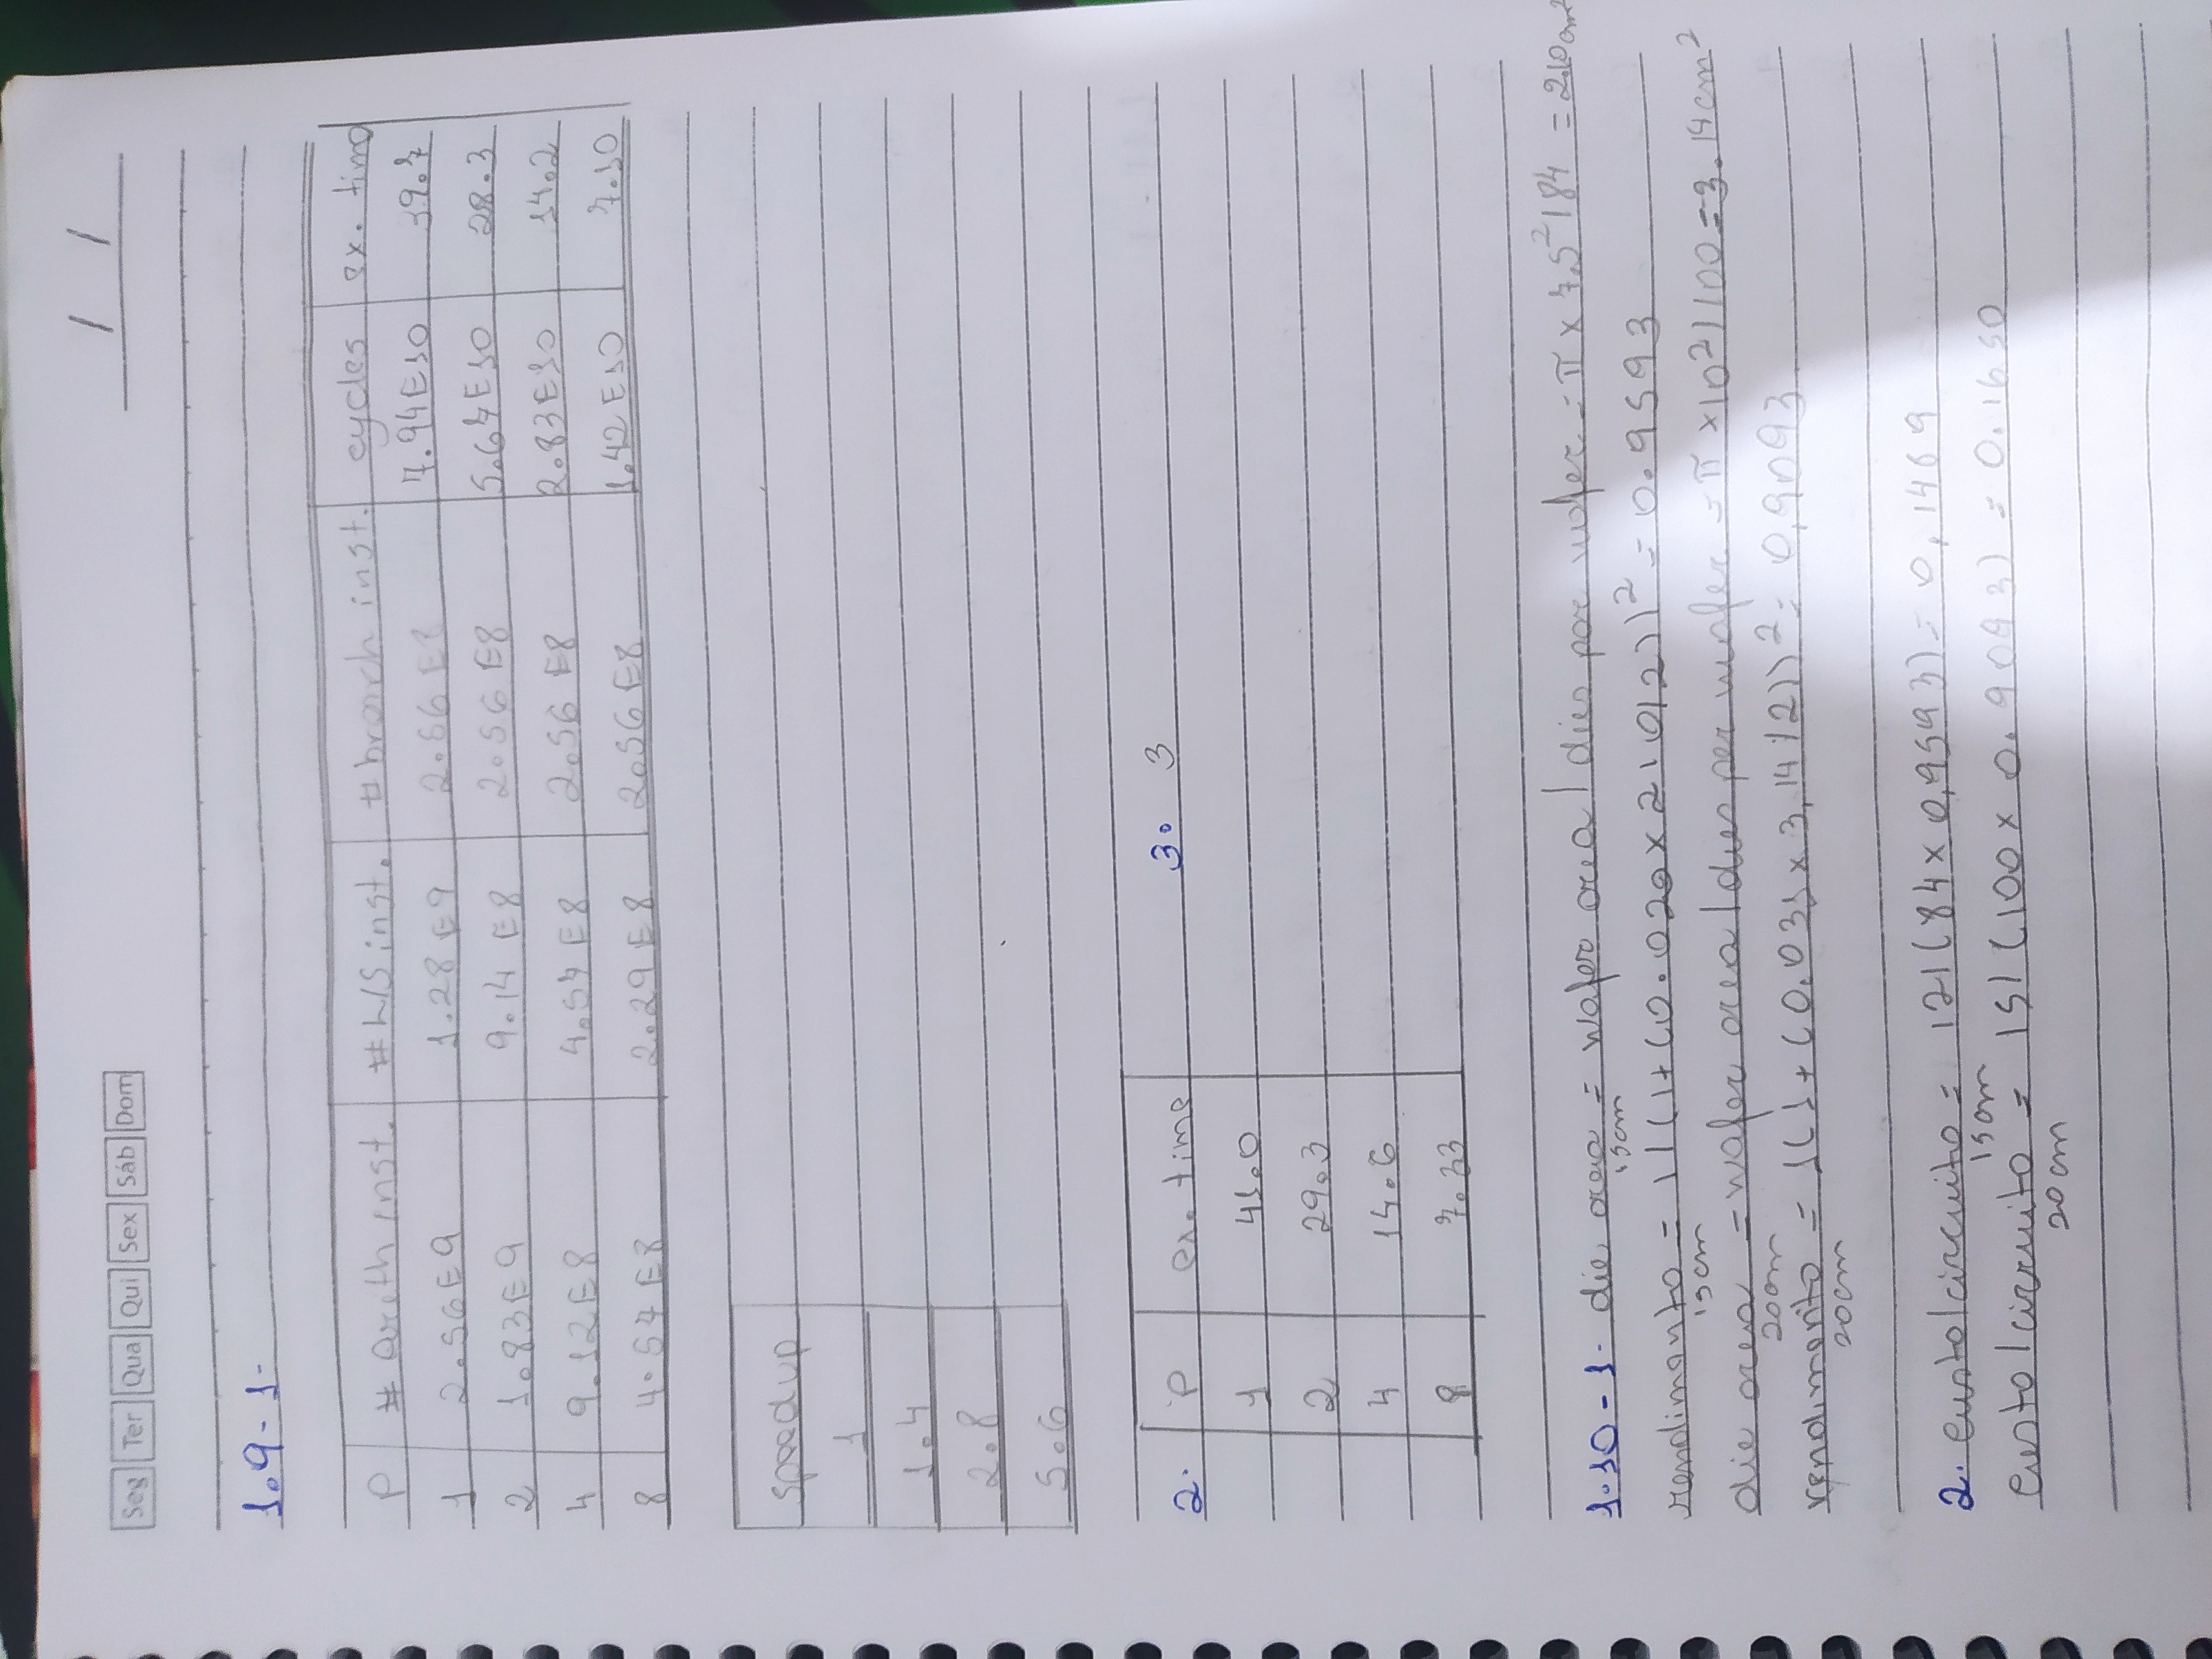 Seg Ter Qua Qui Sex Sáb Dom / /
1.9-1-
P # arith inst. # L/S inst. # branch inst. cycles ex. time
1 2.56E9 1.28E9 2.56E8 7.94E10 39.7
2 1.83E9 9.14E8 2.56E8 5.67E10 28.3
4 9.12E8 4.57E8 2.56E8 2.83E10 14.2
8 4.57E8 2.29E8 2.56E8 1.42E10 7.10
speedup
1
1.4
2.8
5.6
2. P ex. time 3. 3
1 41.0
2 29.3
4 14.6
8 7.33
1.10-1. die area 15cm = wafer area / dies por wafer = π × 7.5² / 84 = 2.10 cm²
rendimento 15cm = 1/(1+(0.020×210/2))² = 0.9593
die area 20cm = wafer area / dies per wafer = π × 10² / 100 = 3.14 cm²
rendimento 20cm = 1(1+(0.031×3,14/2))² = 0,9093
2. custo/circuito 15cm = 12/(84×0,9593) = 0,1489
custo/circuito 20cm = 15/(100×0.9093) = 0.1650